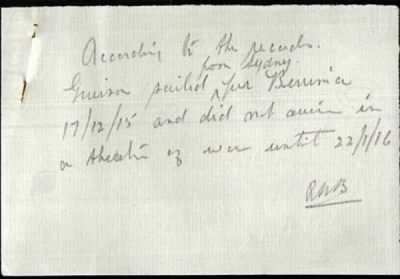 According to the records.
from Sydney.
sailed per Berrima
17/12/15 and did not arrive in
a theatre of war until 22/1/16
RMB